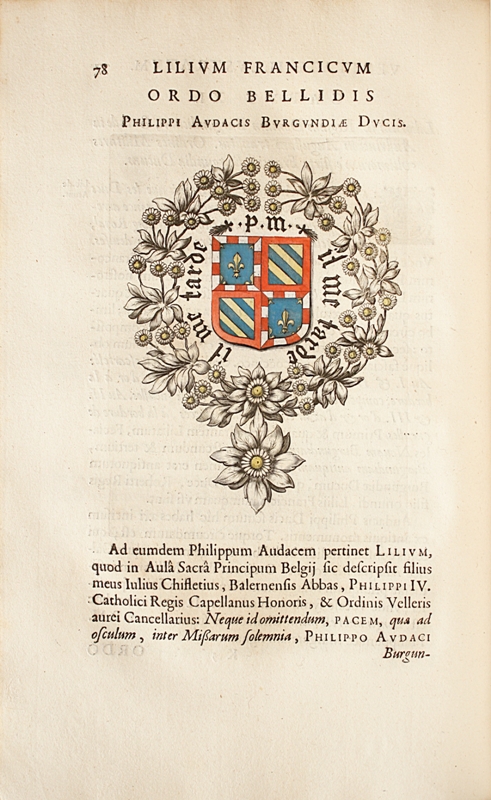 78 LILIVM FRANCICVM
ORDO BELLIDIS
PHILIPPI AVDACIS BVRGVNDIÆ DVCIS.
.p.m.
il me tarde
il me tarde
Ad eumdem Philippum Audacem pertinet LILIVM,
quod in Aulâ Sacrâ Principum Belgij sic descripsit filius
meus Iulius Chifletius, Balernensis Abbas, PHILIPPI IV.
Catholici Regis Capellanus Honoris, & Ordinis Velleris
aurei Cancellarius: Neque id omittendum, PACEM, qua ad
osculum, inter Missarum solemnia, PHILIPPO AVDACI
Burgun-